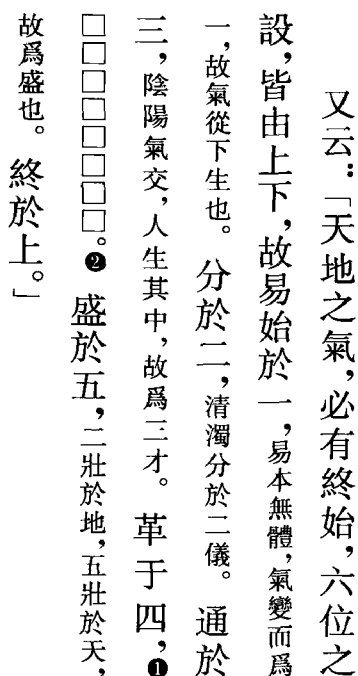 又云：「天地之氣，必有終始，六位之
設，皆由上下，故易始於一，易本無體，氣變而爲
一，故氣從下生也。分於二，清濁分於二儀。通於
三，陰陽氣交，人生其中，故爲三才。革于四，❶
□□□□□□□。❷盛於五，二壯於地，五壯於天，
故爲盛也。終於上。」